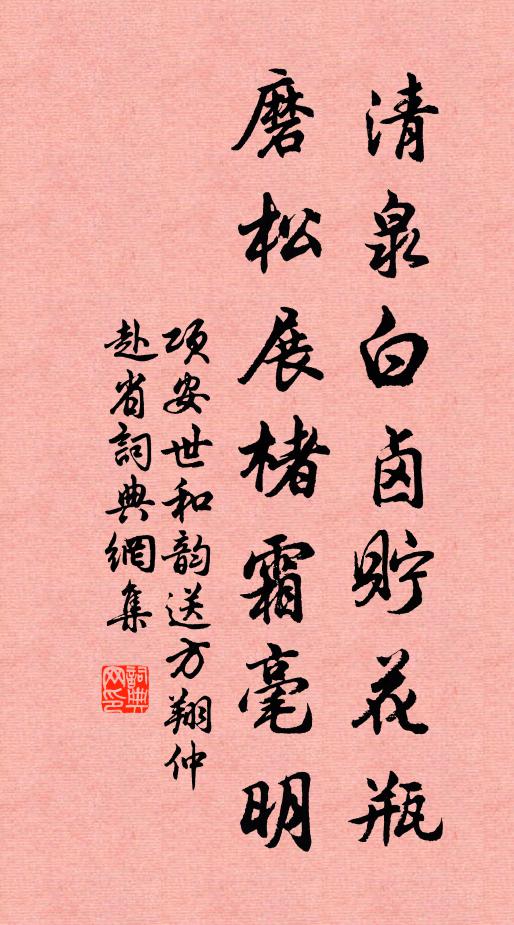 清泉白卤貯花瓶
磨松展楮霜毫明
项安世和韵送方翔仲
赴省詞典網集
詞典
网印